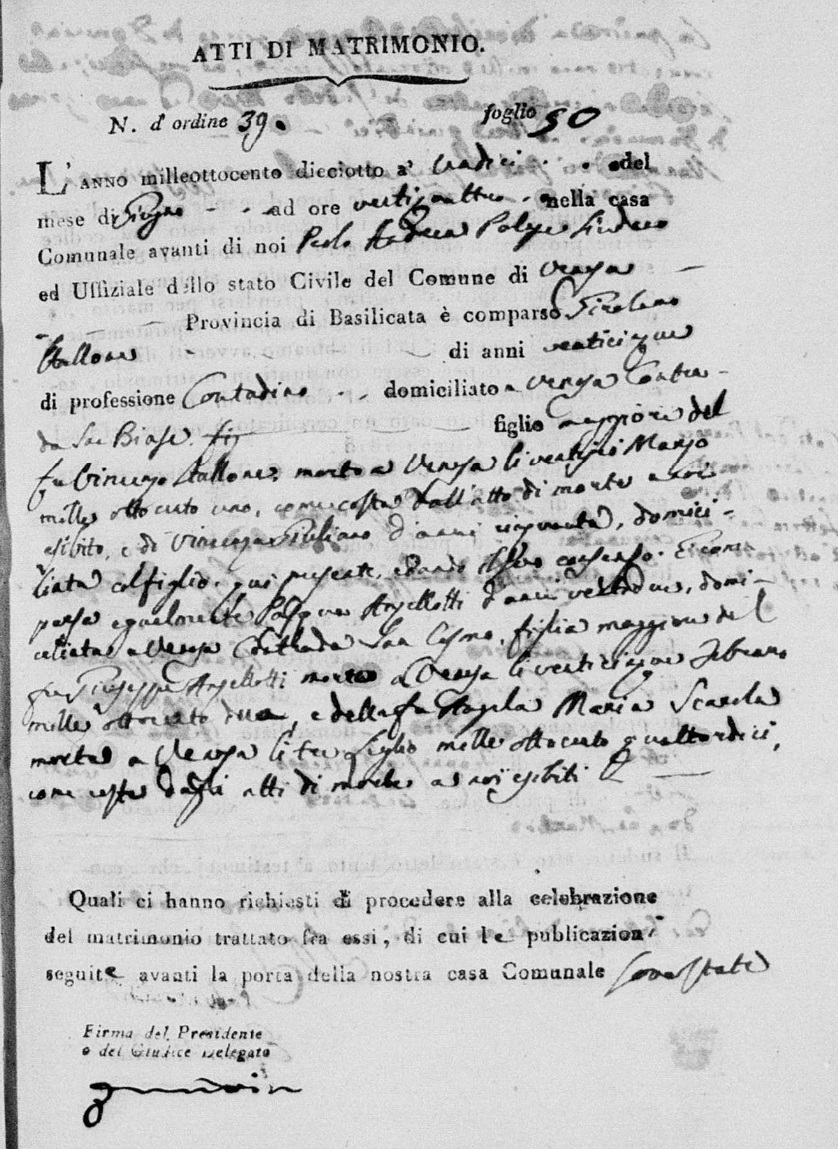 ATTI DI MATRIMONIO.
N. d'ordine 39. foglio 50
L'ANNO milleottocento dieciotto a' tredici del
mese di Giugno ad ore venti quattro nella casa
Comunale avanti di noi Paolo Andrea Sindaco
ed Uffiziale dello stato Civile del Comune di Venosa
Provincia di Basilicata è comparso Girolamo
Stallone di anni venticinque
di professione Contadino domiciliato a Venosa Contra-
da San Biase figlio maggiore del
fu Vincenzo Stallone, morto a Venosa li Marzo
mille ottocento uno, come costa dall'atto di morte a noi
esibito, e di Vincenza Giuliano d'anni cinquanta, domici-
liata col figlio, qui presente, e dando il suo consenso. E com-
parsa egualmente Pasqua Angellotti d'anni ventidue, domi-
ciliata a Venosa Contrada San Cosmo, figlia maggiore del
fu Giuseppe Angellotti morto a Venosa li venticinque Febraro
mille ottocento due, e della fu Angela Maria Scarola
morta a Venosa li tre Luglio mille ottocento quattordici,
come costa dagli atti di morte a noi esibiti
Quali ci hanno richiesti di procedere alla celebrazione
del matrimonio trattato fra essi, di cui le publicazioni
seguite avanti la porta della nostra casa Comunale sono state
Firma del Presidente
o del Giudice Delegato